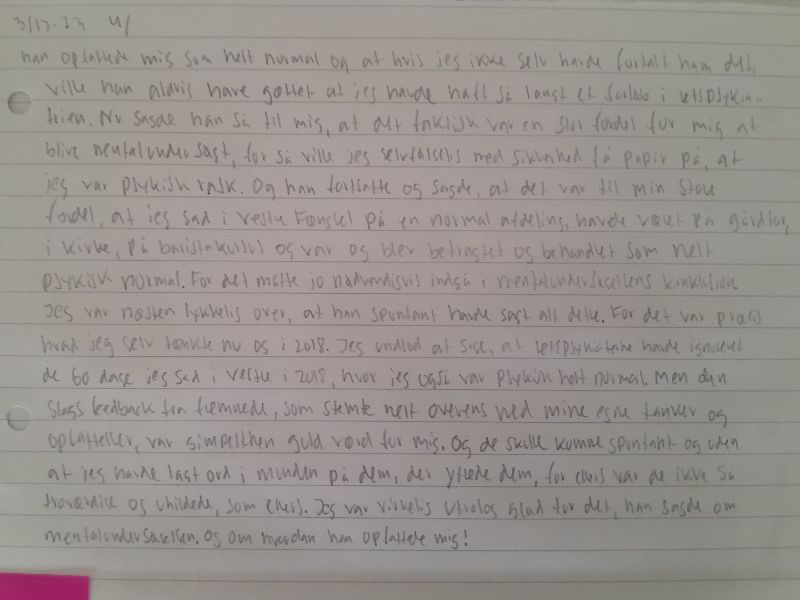 3/12-23 4/
han opfattede mig som helt normal og at hvis jeg ikke selv havde fortalt ham det,
ville han aldrig have gættet at jeg havde haft så langt et forløb i retspsykia-
trien. Nu sagde han så til mig, at det faktisk var en stor fordel for mig at
blive mentalundersøgt, for så ville jeg selvfølgelig med sikkerhed få papir på, at
jeg var psykisk rask. Og han fortsatte og sagde, at det var til min store
fordel, at jeg sad i Vestre Fængsel på en normal afdeling, havde været på gårdtur,
i kirke, på baristakursus og var og blev betragtet og behandlet som helt
psykisk normal. For det måtte jo nødvendigvis indgå i mentalundersøgelsens konklusion.
Jeg var næsten lykkelig over, at han spontant havde sagt alt dette. For det var præcis
hvad jeg selv tænkte nu og i 2018. Jeg undlod at sige, at retspsykiaterne havde ignoreret
de 60 dage jeg sad i Vestre i 2018, hvor jeg også var psykisk helt normal. Men den
slags feedback fra fremmede, som stemte helt overens med mine egne tanker og
opfattelser, var simpelthen guld værd for mig. Og de skulle komme spontant og uden
at jeg havde lagt ord i munden på dem, der ytrede dem, for ellers var de ikke så
troværdige og uhildede, som ellers. Jeg var virkelig utrolig glad for det, han sagde om
mentalundersøgelsen. Og om hvordan han opfattede mig!